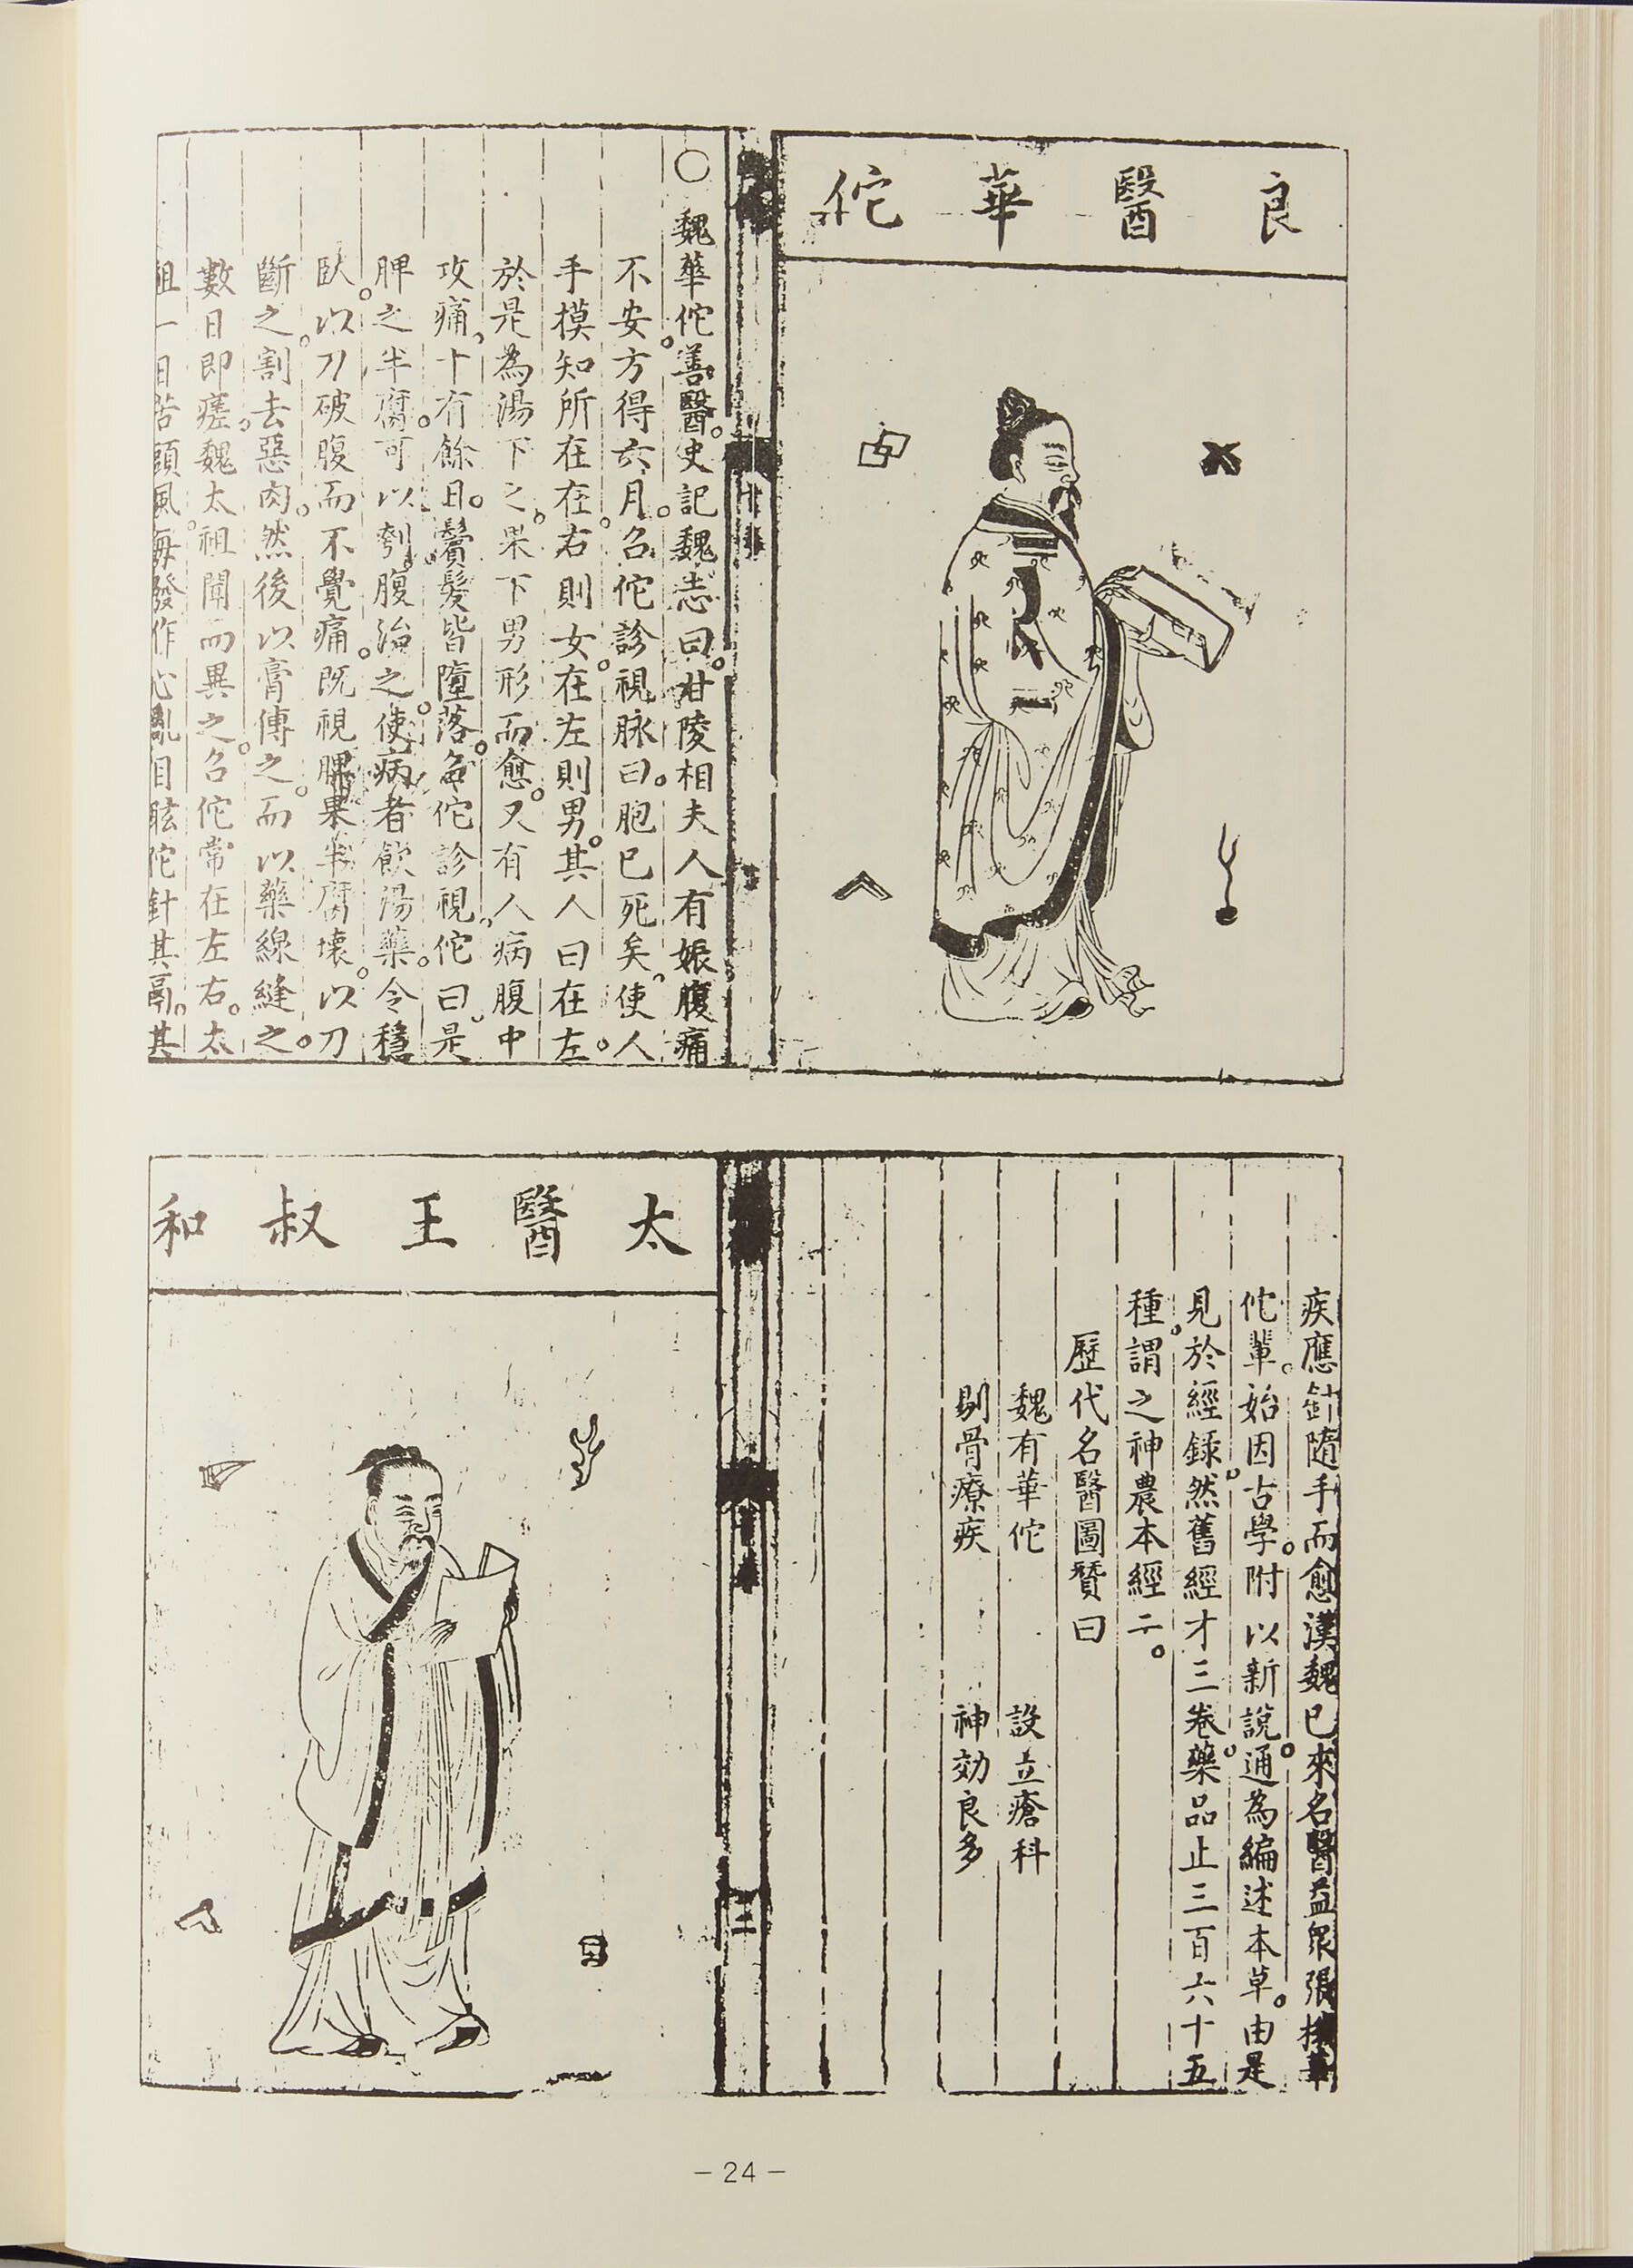 良醫華佗
○魏華佗善醫。史記魏志曰。甘陵相夫人有娠腹痛
不安。方得六月。召佗診視脉。曰胞已死矣。使人
手模知所在。在右則女。在左則男。其人曰在左。
於是為湯下之。果下男形而愈。又有人病腹中
攻痛。十有餘日。鬢髮皆墮落。召佗診視。佗曰。是
脾之半腐。可以刳腹治之。使病者飲湯藥。令穩
臥。以刀破腹。而不覺痛。既視脾果半腐壞。以刀
斷之。割去惡肉。然後以膏傅之。而以藥線縫之。
數日即瘥。魏太祖聞而異之。召佗常在左右。太
祖一目苦頭風。每發作心亂目眩。佗針其鬲。其
疾應針隨手而愈。漢魏已來。名醫益眾。張機華
佗輩。始因古學。附以新說。通為編述本草。由是
見於經錄。然舊經才三卷。藥品止三百六十五
種。謂之神農本經二。
歷代名醫圖贊曰
魏有華佗 設立瘡科
剔骨療疾 神効良多
二
太醫王叔和
－24－